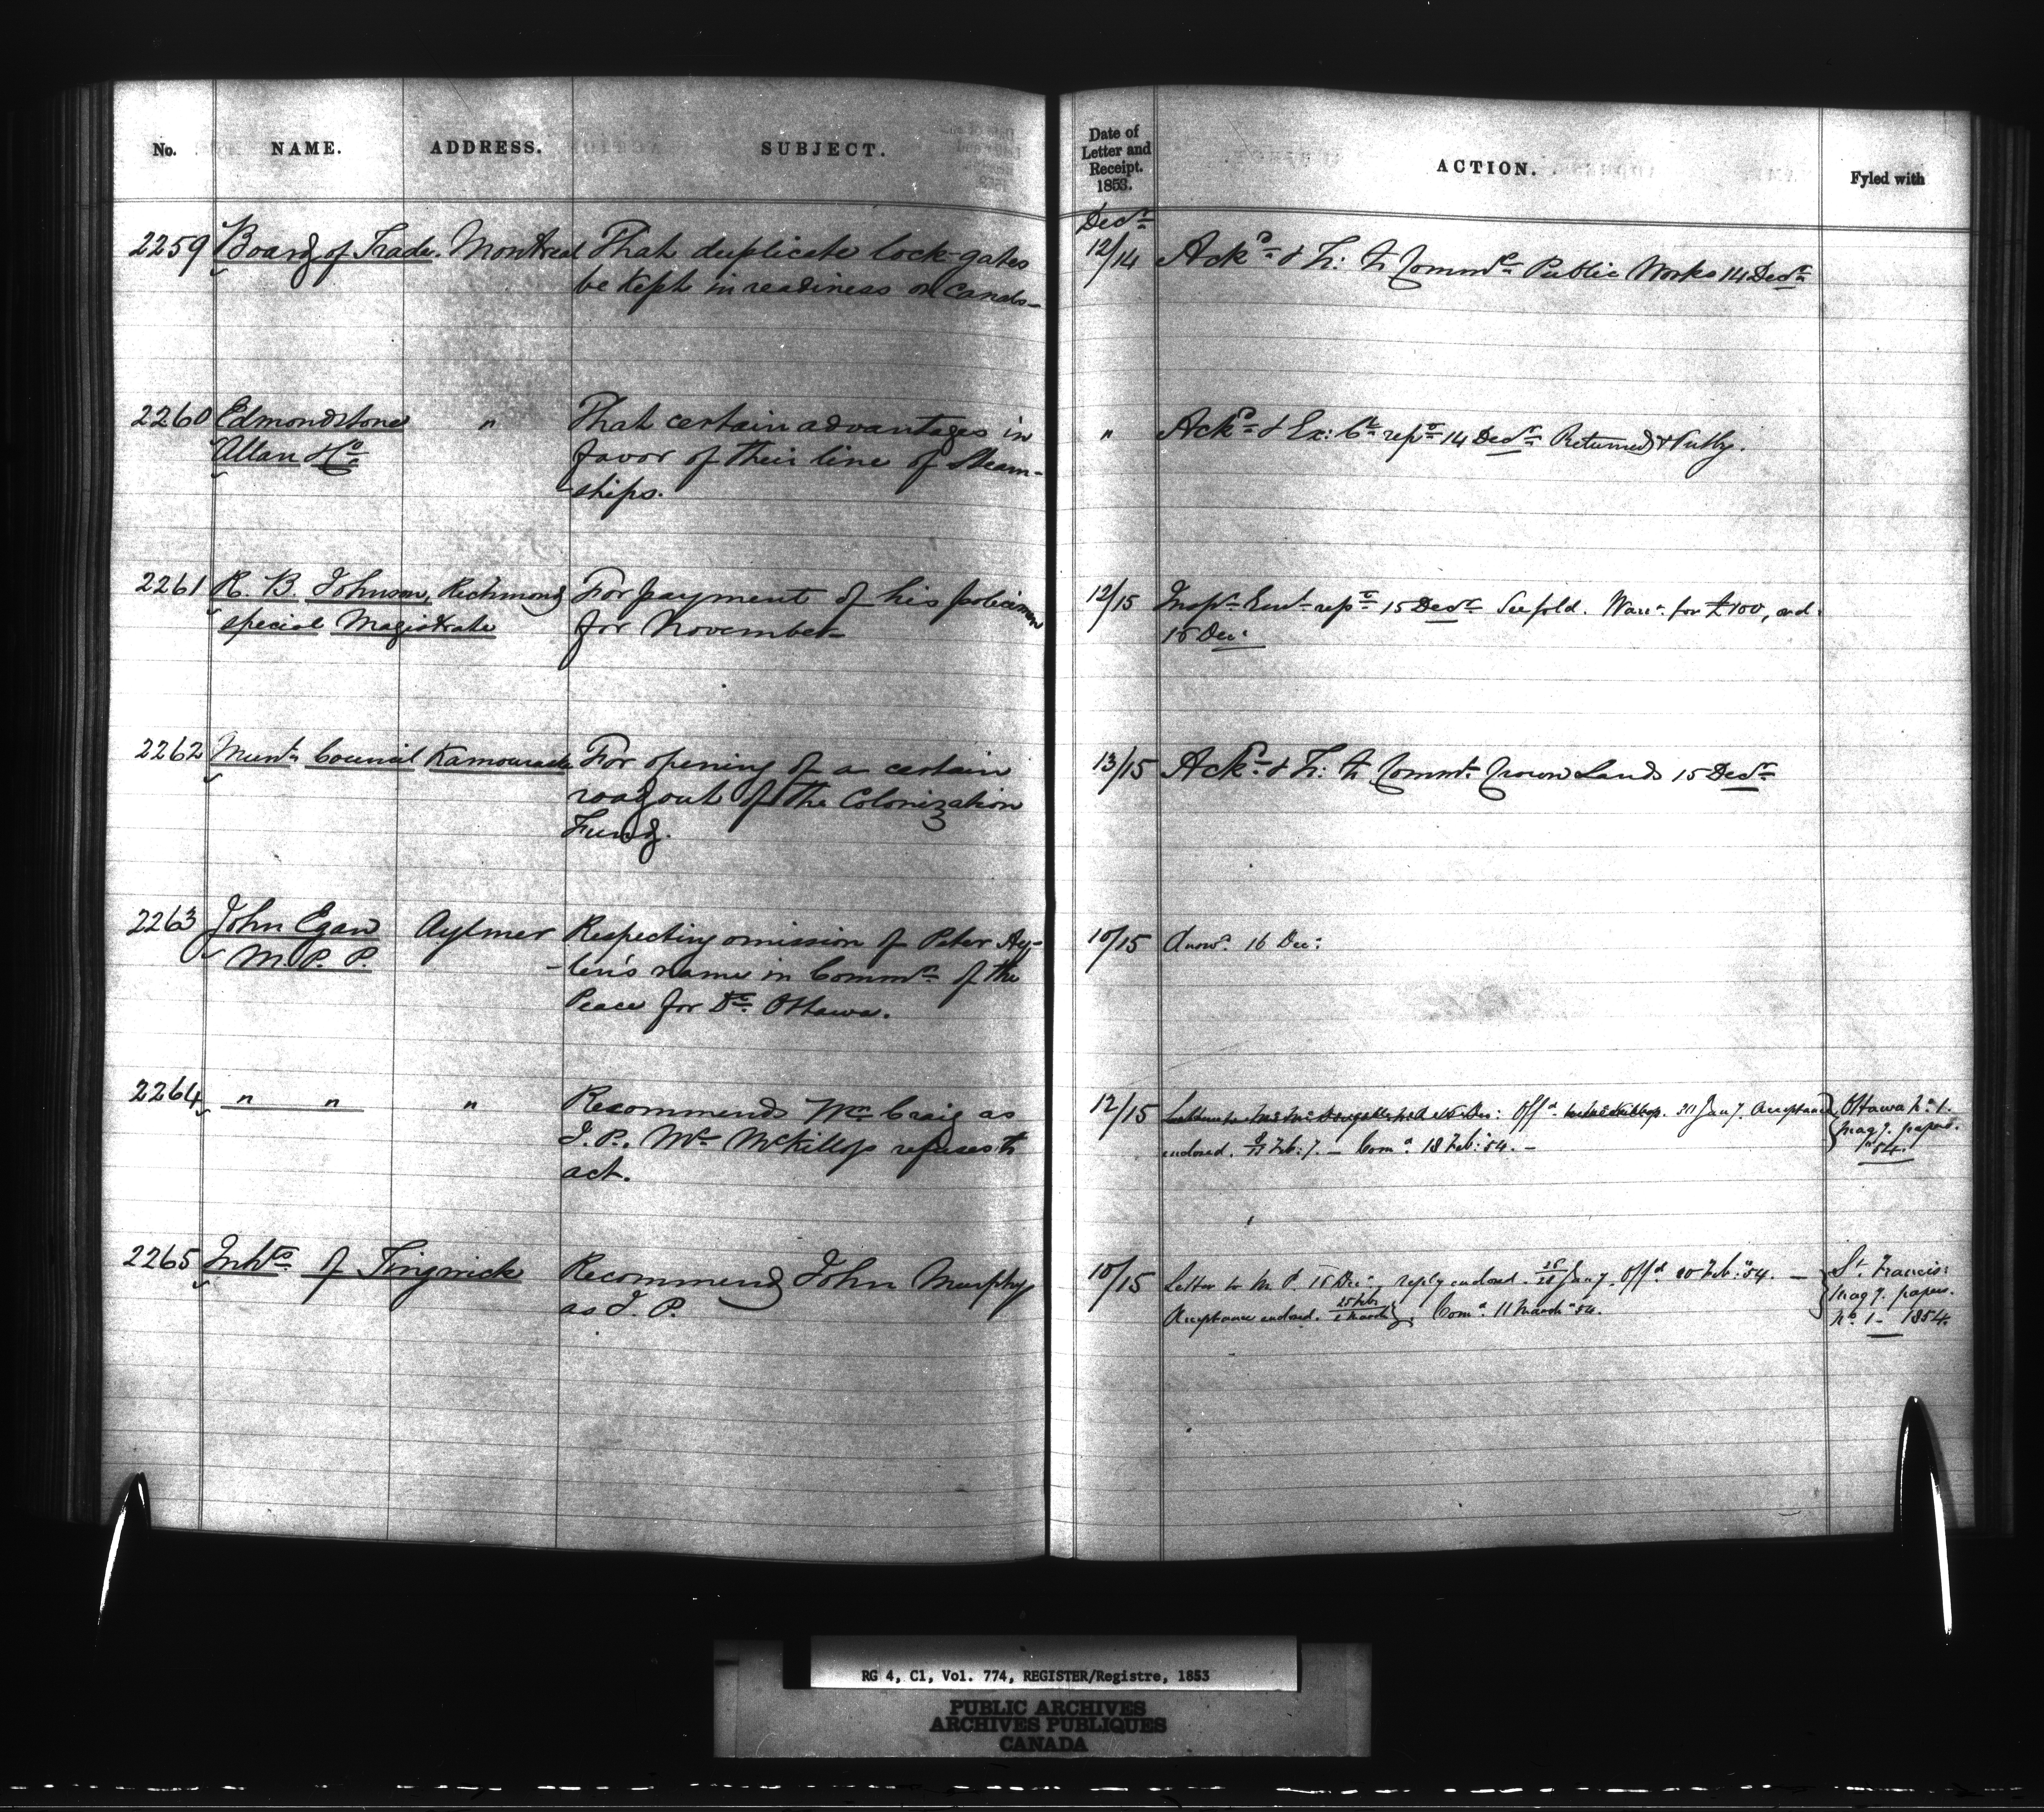 No. NAME. ADDRESS. SUBJECT.
2259 Board of Trade. Montreal That duplicate lock-gates
be kept in readiness on Canals—
2260 Edmondstone " That certain advantages in
Allan & Co favor of their line of Steam-
ships.
2261 R. B. Johnson, Richmond For payment of his policemen
special Magistrate for November
2262 Munl. Council Kamouraska For opening of a certain
road out of the Colonization
Fund.
2263 John Egan Aylmer Respecting omission of Peter Ay-
M. P. P. -len's name in Commn. of the
Peace for Dt. Ottawa.
2264 " " " Recommends Wm. Craig as
J. P. Mr. McKillop refuses to
act.
2265 Inhts. of Tingwick Recommend John Murphy
as J. P.
Date of
Letter and
Receipt.
1853. ACTION. Fyled with
Decr.
12/14 Ackd. & Tr: to Commrs. Public Works 14 Decr.
" Ackd. & Ex: Cl. repd. 14 Decr. Returned &
12/15 Inspr. Genl. repd. 15 Decr. See fold. Warrt. for £100,
15 Dec:
13/15 Ackd. & Tr: to Commr. Crown Lands 15 Decr.
10/15 Answd. 16 Dec:
12/15 Offd. 20 Jany. Acceptance Ottawa No. 1.
enclosed. Feb:y. — Comn. 18 Feb: 54. — Magy. papers.
1854.
10/15 Letter to M. P. 15 Dec:, reply enclosed. 26/28 Jany. Offd. 20 Feb: 54. — St. Francis:
Acceptance enclosed. 25 Feb/March Comn. 11 March 54. Magy. papers.
No. 1 - 1854.
RG 4, C1, Vol. 774, REGISTER/Registre, 1853
PUBLIC ARCHIVES
ARCHIVES PUBLIQUES
CANADA